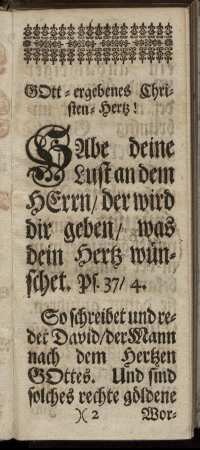 GOtt-ergebenes Chri-
sten-Hertz!
HAbe deine
Lust an dem
HErrn/ der wird
dir geben/ was
dein Hertz wün-
schet. Ps. 37/ 4.
So schreibet und re-
det David/ der Mann
nach dem Hertzen
GOttes. Und sind
solches rechte göldene
)( 2 Wor-